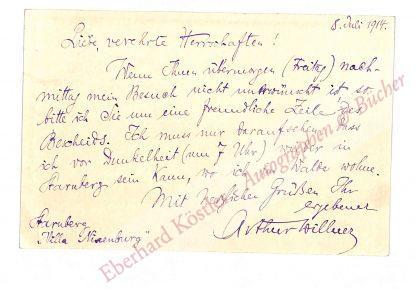 8. Juli 1914.
Liebe, verehrte Herrschaften!
Wenn Ihnen übermorgen (Freitag) nach-
mittag mein Besuch nicht unerwünscht ist so
bitte ich Sie um eine freundliche Zeile des
Bescheids. Ich muss nur darauf sehen, dass
ich vor Dunkelheit (um 7 Uhr) wieder in
Starnberg sein kann, wo ich im Walde wohne.
Mit herzlichen Grüßen Ihr
ergebener
Arthur Willner
Starnberg
"Villa Nixenburg"
Eberhard Köstler Autographen & Bücher